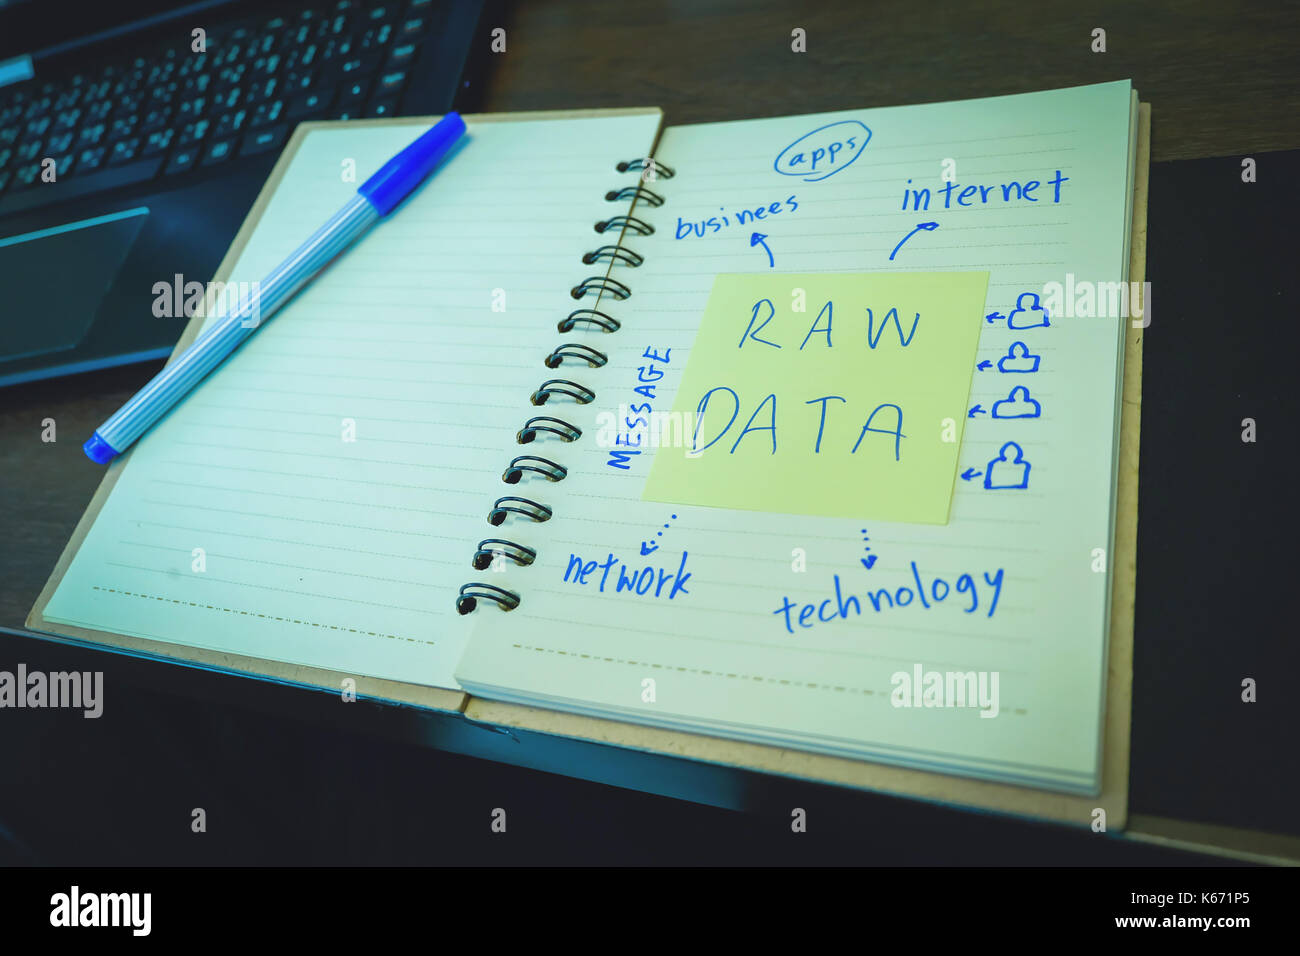 apps
businees
internet
RAW
DATA
MESSAGE
network
technology
alamy
Image ID: K671P5
www.alamy.com